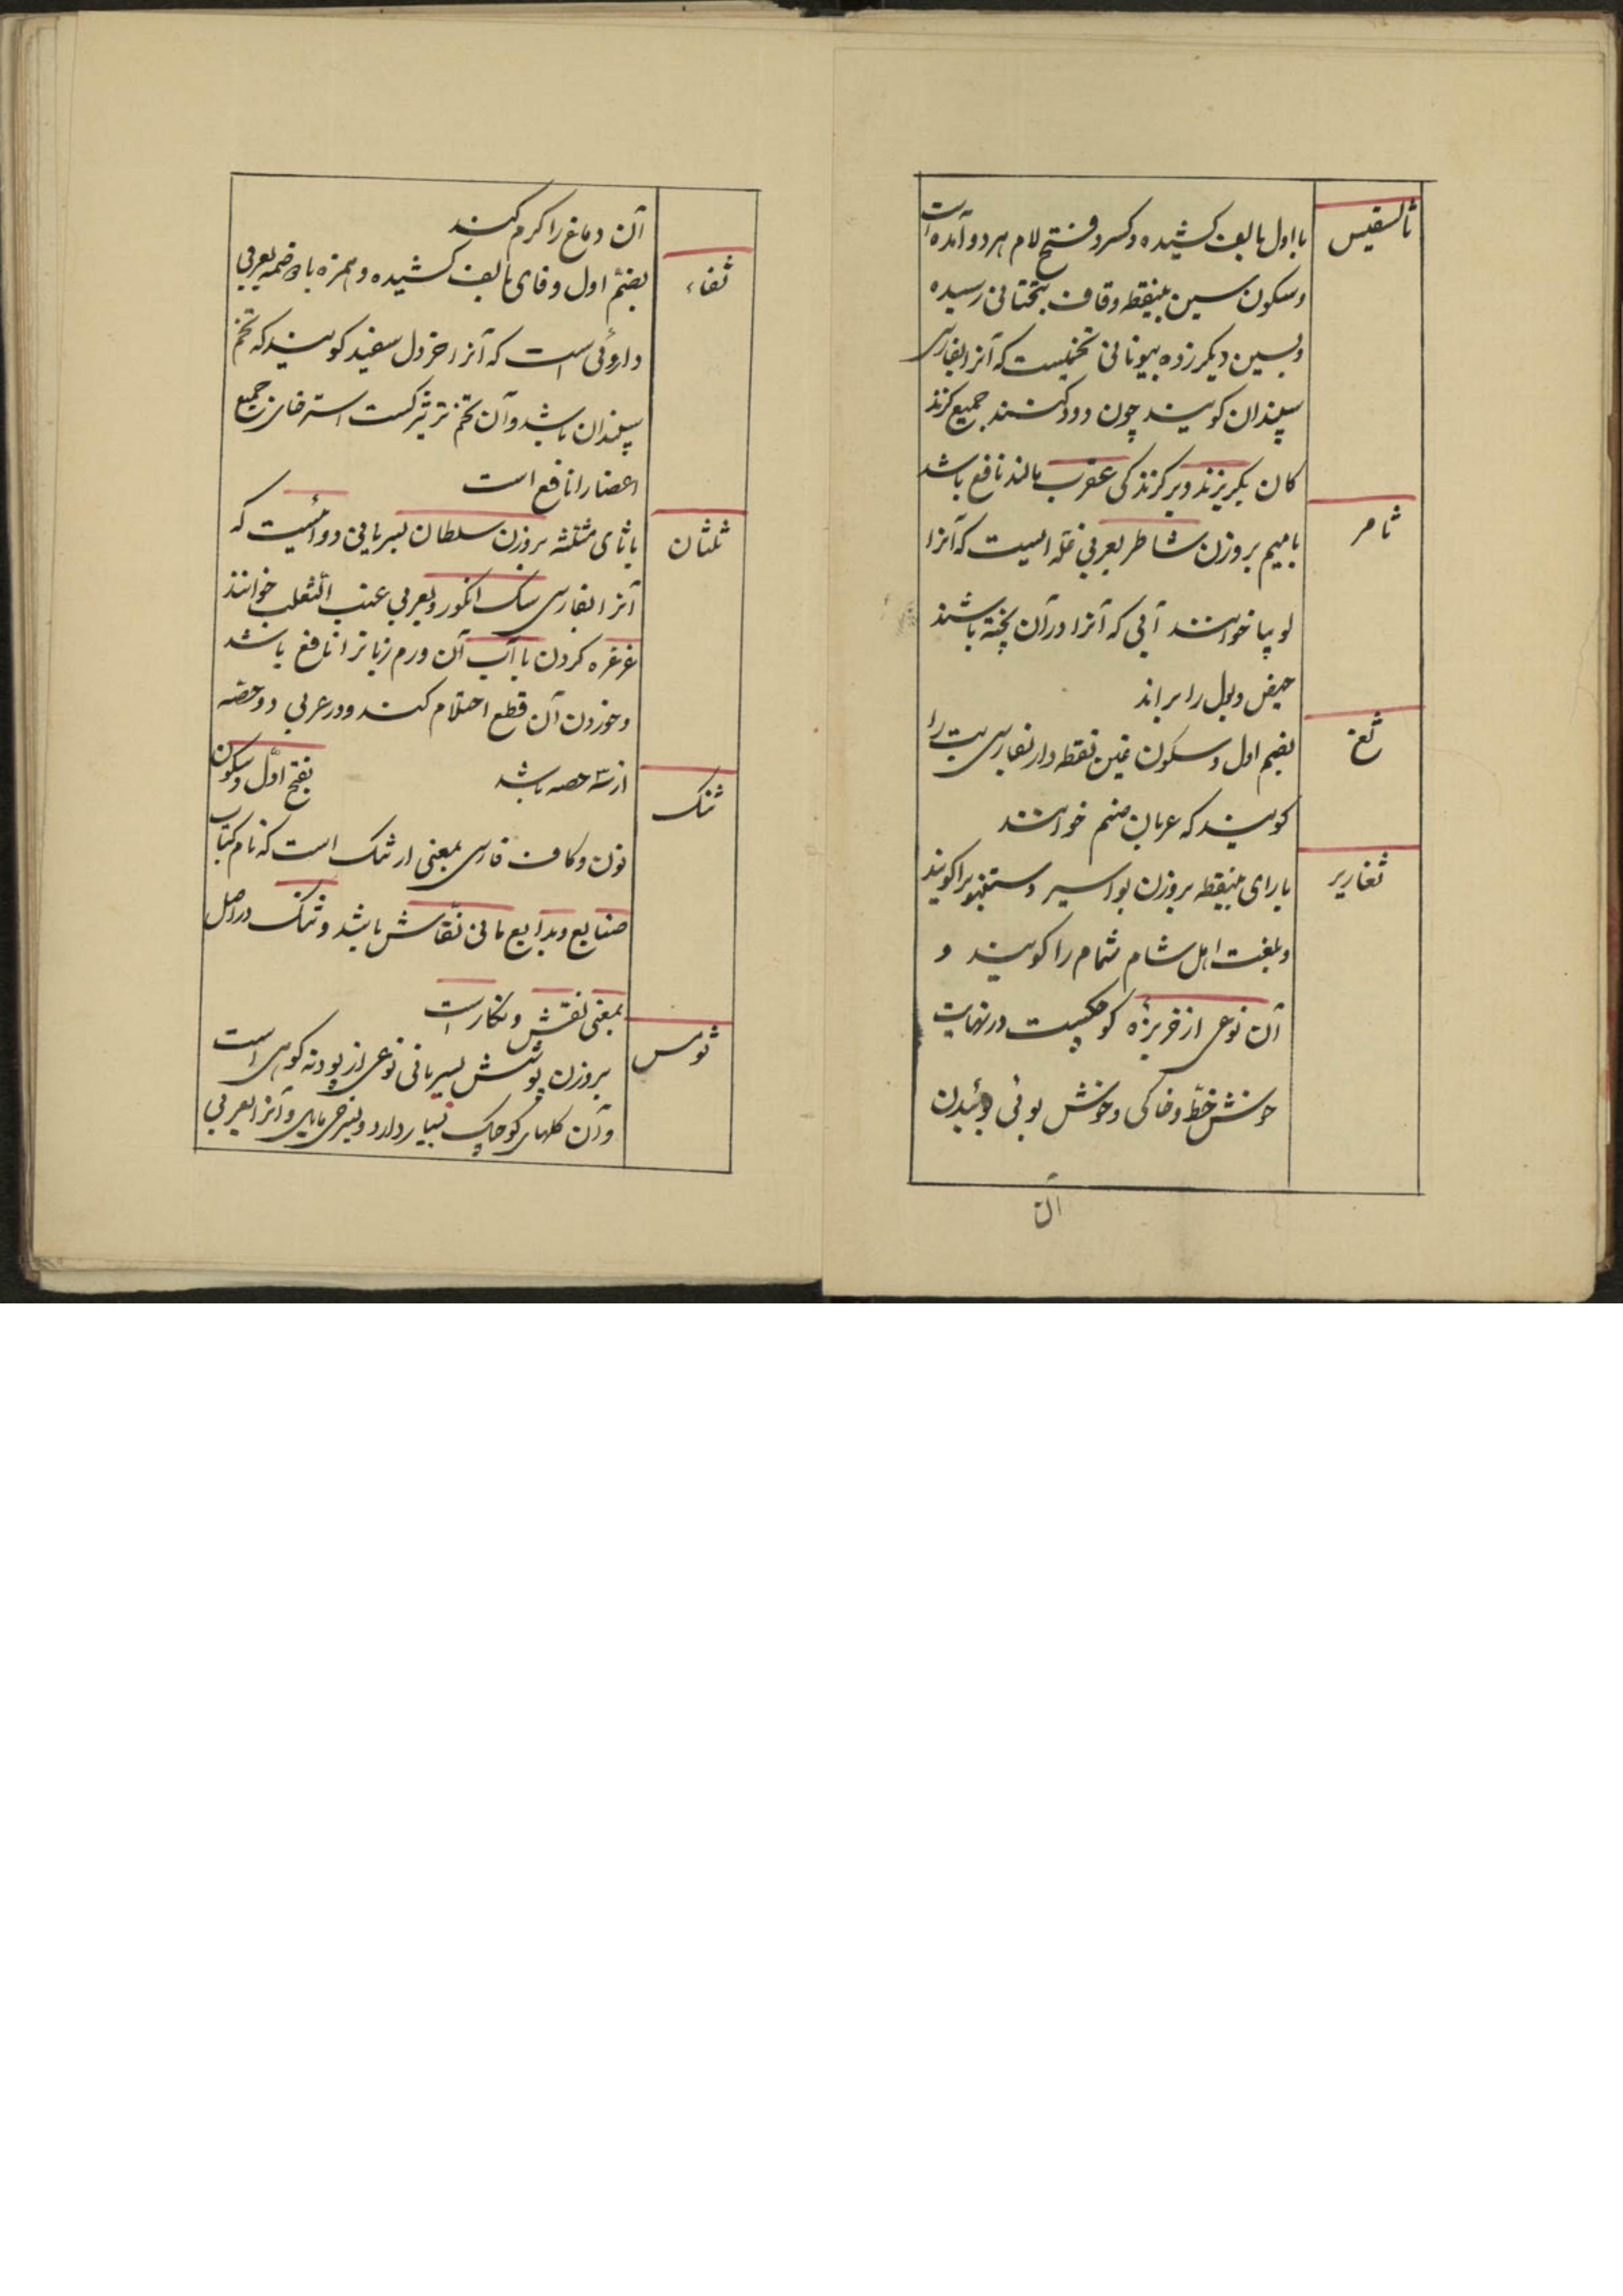 ثالسفیس
با اول بالف کشیده و کسر و فتح لام هر دو آمده است
و سکون سین بینقطه و قاف بتحتانی رسیده
و بسین دیکر زده بیونانی تخمیست که آنرا بفارسی
سپندان کویند چون دود کنند جمیع کزند
کان بکریزند و بر کزندکی عقرب مالند نافع باشد
ثامر
با میم بر وزن شاطر بعربی غله ایست که آنرا
لوبیا خوانند آبی که آنرا در آن پخته باشند
حیض و بول را براند
ثغ
بضم اول و سکون غین نقطه دار بفارسی بت را
کویند که عربان صنم خوانند
ثغاریر
با رای بینقطه بر وزن بواسیر دستنبو را کویند
و بلغت اهل شام شمام را کویند و
آن نوعی از خربزه کوچکیست در نهایت
خوش خطّ و خالی و خوش بوئی بوئیدن
آن
آن دماغ را کرم کند
ثفاء
بضم اول و فای بالف کشیده و همزه بعربی
داروئی است که آنرا خردل سفید کویند که تخم
سپندان باشد و آن تخم تره تیزکست استرخای جمیع
اعضا را نافع است
ثلثان
با ثای مثلثه بر وزن سلطان بسریانی دوائیست که
آنرا بفارسی سک انکور و بعربی عنب الثعلب خوانند
غرغره کردن با آب آن ورم زبانرا نافع باشد
و خوردن آن قطع احتلام کند و در عربی دو حصّه
از سه حصه باشد
ثنک
بفتح اوّل و سکون
نون و کاف فارسی بمعنی ارثنک است که نام کتاب
صنایع و بدایع مانی نقّاش باشد و ثنک در اصل
بمعنی نقش و نکار است
ثومس
بر وزن پوشش بسریانی نوعی از پودنه کوهی است
و آن کلهای کوچک بسیار دارد و بسرخی مایل و آنرا بعربی